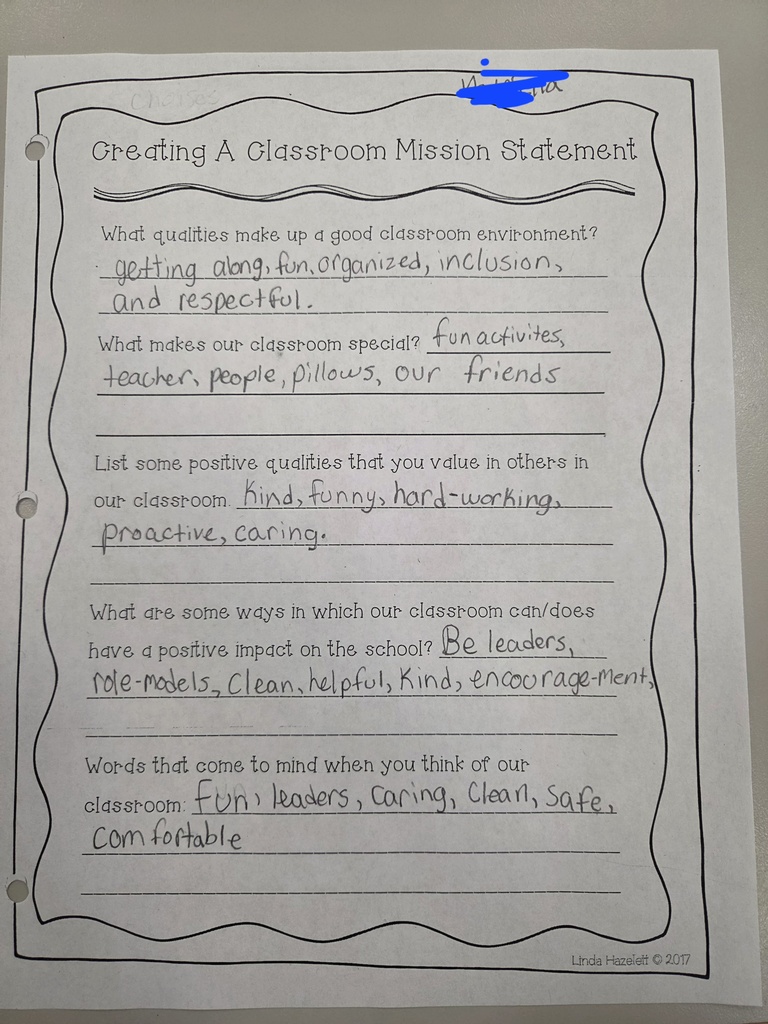 Creating A Classroom Mission Statement
What qualities make up a good classroom environment?
getting along, fun, organized, inclusion,
and respectful.
What makes our classroom special? fun activites,
teacher, people, pillows, our friends
List some positive qualities that you value in others in
our classroom. Kind, funny, hard-working,
proactive, caring.
What are some ways in which our classroom can/does
have a positive impact on the school? Be leaders,
role-models, Clean, helpful, Kind, encourage-ment,
Words that come to mind when you think of our
classroom: Fun, leaders, Caring, Clean, Safe,
Comfortable
Linda Hazelett © 2017